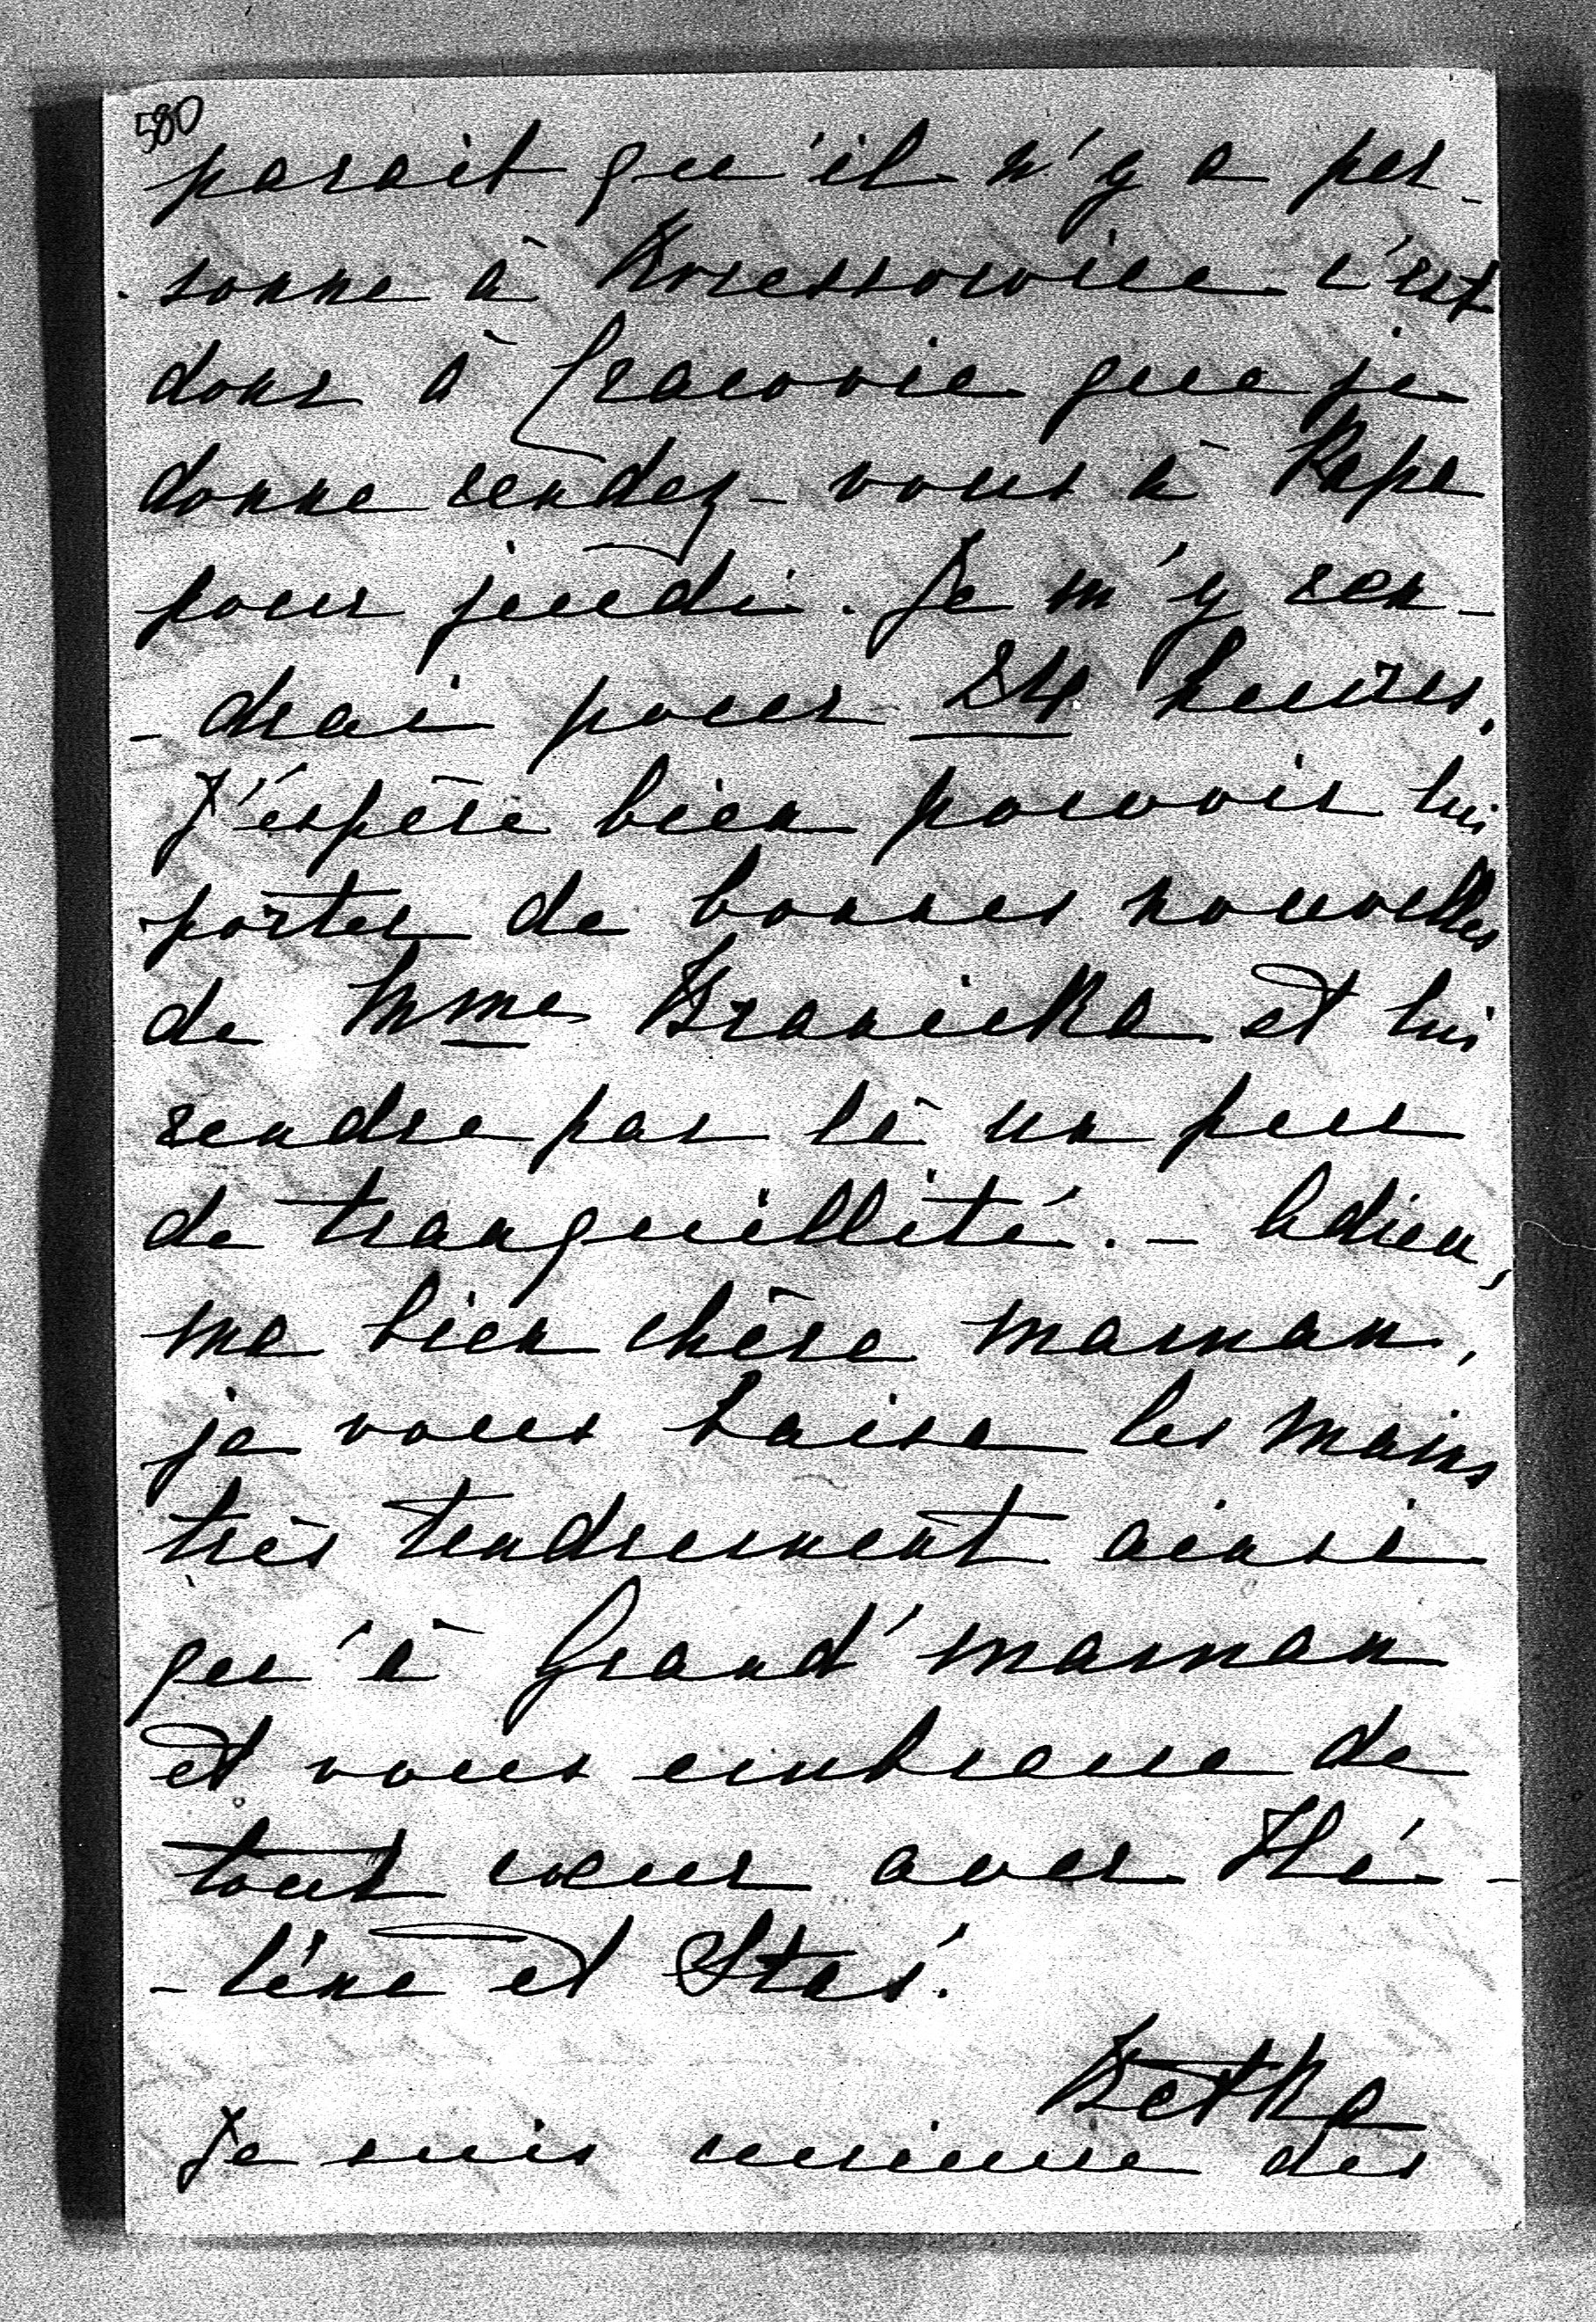 580
parait qu'il n'y a per-
sonne à Krzessowice c'est
donc à Cracovie que je
donne rendez-vous à Papa
pour jeudi. Je m'y ren-
-drai pour 24 heures.
J'espère bien pouvoir lui
porter de bonnes nouvelles
de Mme Branicka et lui
rendre par là un peu
de tranquillité. - Adieu,
ma bien chère maman,
je vous baise les mains
très tendrement ainsi
qu'à Grand'maman
et vous embrasse de
tout cœur avec Hé-
-lène et Staś.
Betka
Je suis curieuse des